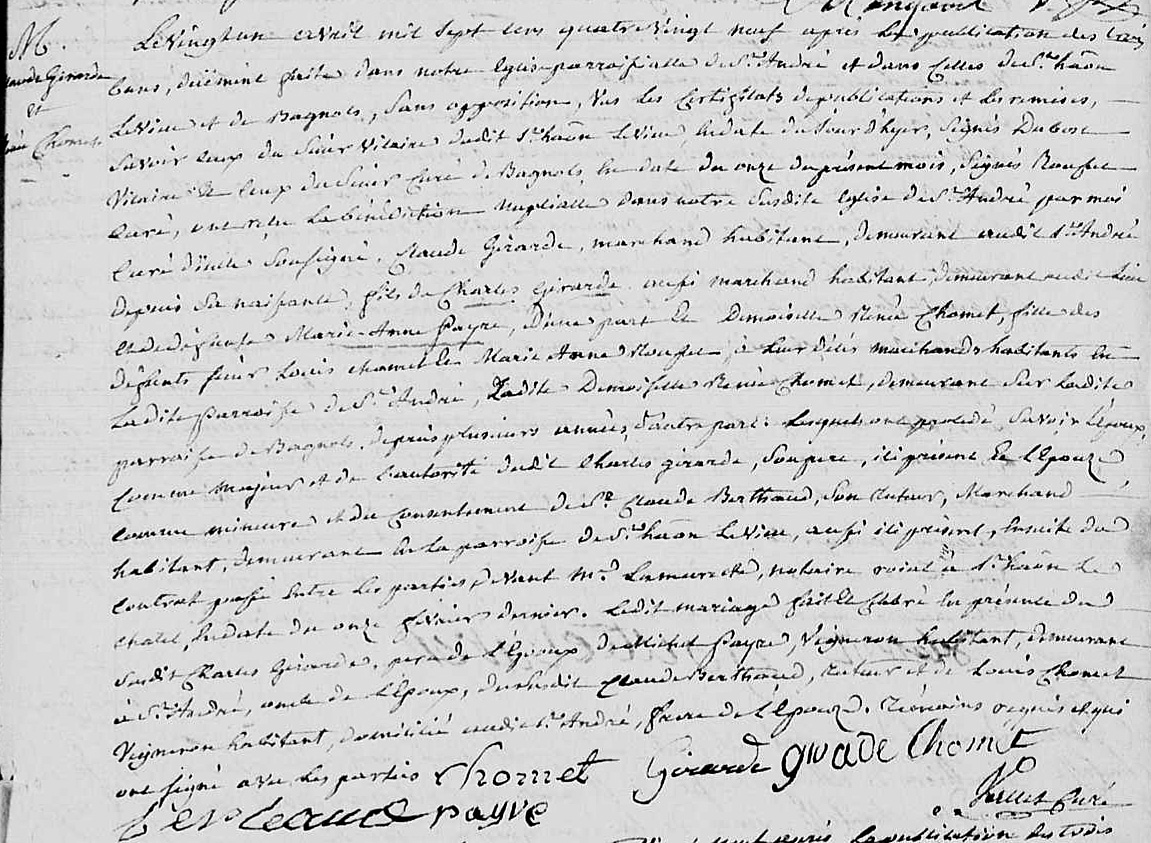 M.
Claude Girarde
et
Renée Chomet
Le vingt un avril mil sept cens quatre vingt neuf après la publication des trois
bans, duement faite dans notre église parroissialle de St. André et dans celles de St. haon
Le vieux et de Bagnols, sans opposition, vus les certificats de publications et les remises,
savoir ceux du Sieur Vicaire dudit St. haon le vieux, en date du jour d'hyer, signés Dubost
Vicaire et ceux du Sieur curé de Bagnols, en date du onze du présent mois, signés
curé, ont reçu la bénédiction nuptialle dans notre susdite église de St. André par moi
curé d'icelle soussigné, Claude Girarde, marchand habitant, demeurant audit St. André
depuis sa naissance, fils de Charles Girarde, aussi marchand habitant, demeurant audit lieu
et de défunte Marie-Anne Payre, d'une part Et Demoiselle Renée Chomet, fille des
défunts sieur Louis chomet et Marie Anne, à leur décès marchands habitants en
Ladite parroisse de St. André, Ladite Demoiselle Renée Chomet, demeurant sur Ladite
parroisse de Bagnols, depuis plusieurs années, d'autre part. Lesquels ont procédé, savoir l'époux,
comme majeur et de l'autorité dudit Charles girarde, son pere, ici présent Et l'épouze
comme mineure et du consentement de Sr. Claude Berthaud, son tuteur, Marchand
habitant, demeurant en la parroisse de St. haon Le vieux, aussi ici présent, ensuite du
contrat passé entre les parties, devant Me., notaire roial à St. haon Le
chatel, en date du onze février dernier. Ledit mariage fait et célébré en présence du
susdit Charles Girarde, pere de l'époux, de Michel Payre, Vigneron habitant, demeurant
à St. André, oncle de l'époux, du susdit Claude Berthaud, tuteur et de Louis Chomet
Vigneron habitant, domicilié audit St. André, frere de l'épouze. Témoins requis et qui
ont signé avec les parties Chomet Girarde girade Chomet
payre curé
après la publication des trois